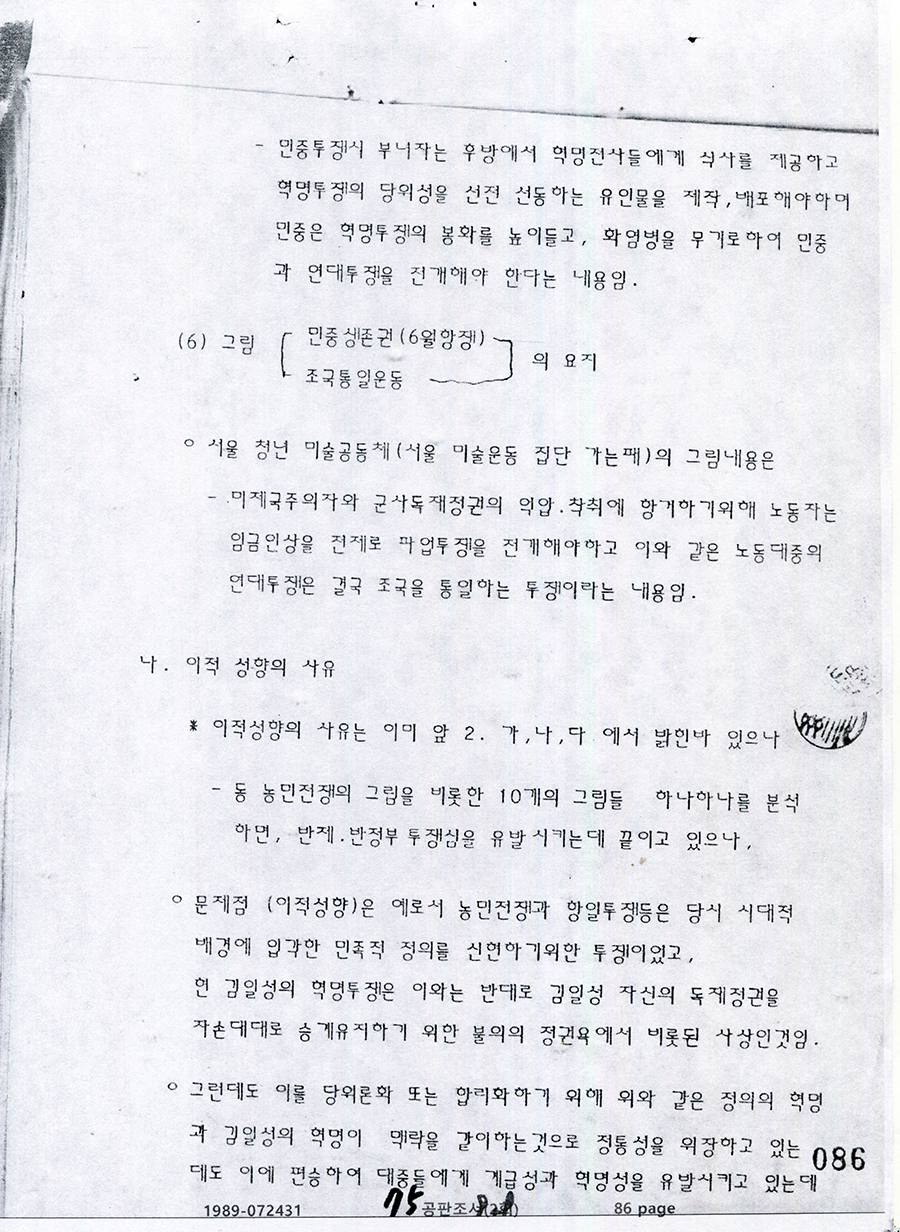 - 민중투쟁시 부녀자는 후방에서 혁명전사들에게 식사를 제공하고
혁명투쟁의 당위성을 선전 선동하는 유인물을 제작,배포해야하며
민중은 혁명투쟁의 봉화를 높이들고, 화염병을 무기로하여 민중
과 연대투쟁을 전개해야 한다는 내용임.
(6) 그림 민중생존권(6월항쟁) 의 요지
조국통일운동
ㅇ 서울 청년 미술공동체(서울 미술운동 집단 가는패)의 그림내용은
- 미제국주의자와 군사독재정권의 억압.착취에 항거하기위해 노동자는
임금인상을 전제로 파업투쟁을 전개해야하고 이와 같은 노동대중의
연대투쟁은 결국 조국을 통일하는 투쟁이라는 내용임.
나. 이적 성향의 사유
* 이적성향의 사유는 이미 앞 2. 가,나,다 에서 밝힌바 있으나
- 동 농민전쟁의 그림을 비롯한 10개의 그림들 하나하나를 분석
하면, 반제.반정부 투쟁심을 유발시키는데 끝이고 있으나,
ㅇ 문제점 (이적성향)은 예로서 농민전쟁과 항일투쟁등은 당시 시대적
배경에 입각한 민족적 정의를 실현하기위한 투쟁이었고,
현 김일성의 혁명투쟁은 이와는 반대로 김일성 자신의 독재정권을
자손대대로 승계유지하기 위한 불의의 정권욕에서 비롯된 사상인것임.
ㅇ 그런데도 이를 당위론화 또는 합리화하기 위해 위와 같은 정의의 혁명
과 김일성의 혁명이 맥락을 같이하는것으로 정통성을 위장하고 있는
데도 이에 편승하여 대중들에게 계급성과 혁명성을 유발시키고 있는데
086
1989-072431 75 공판조서(2회) 86 page